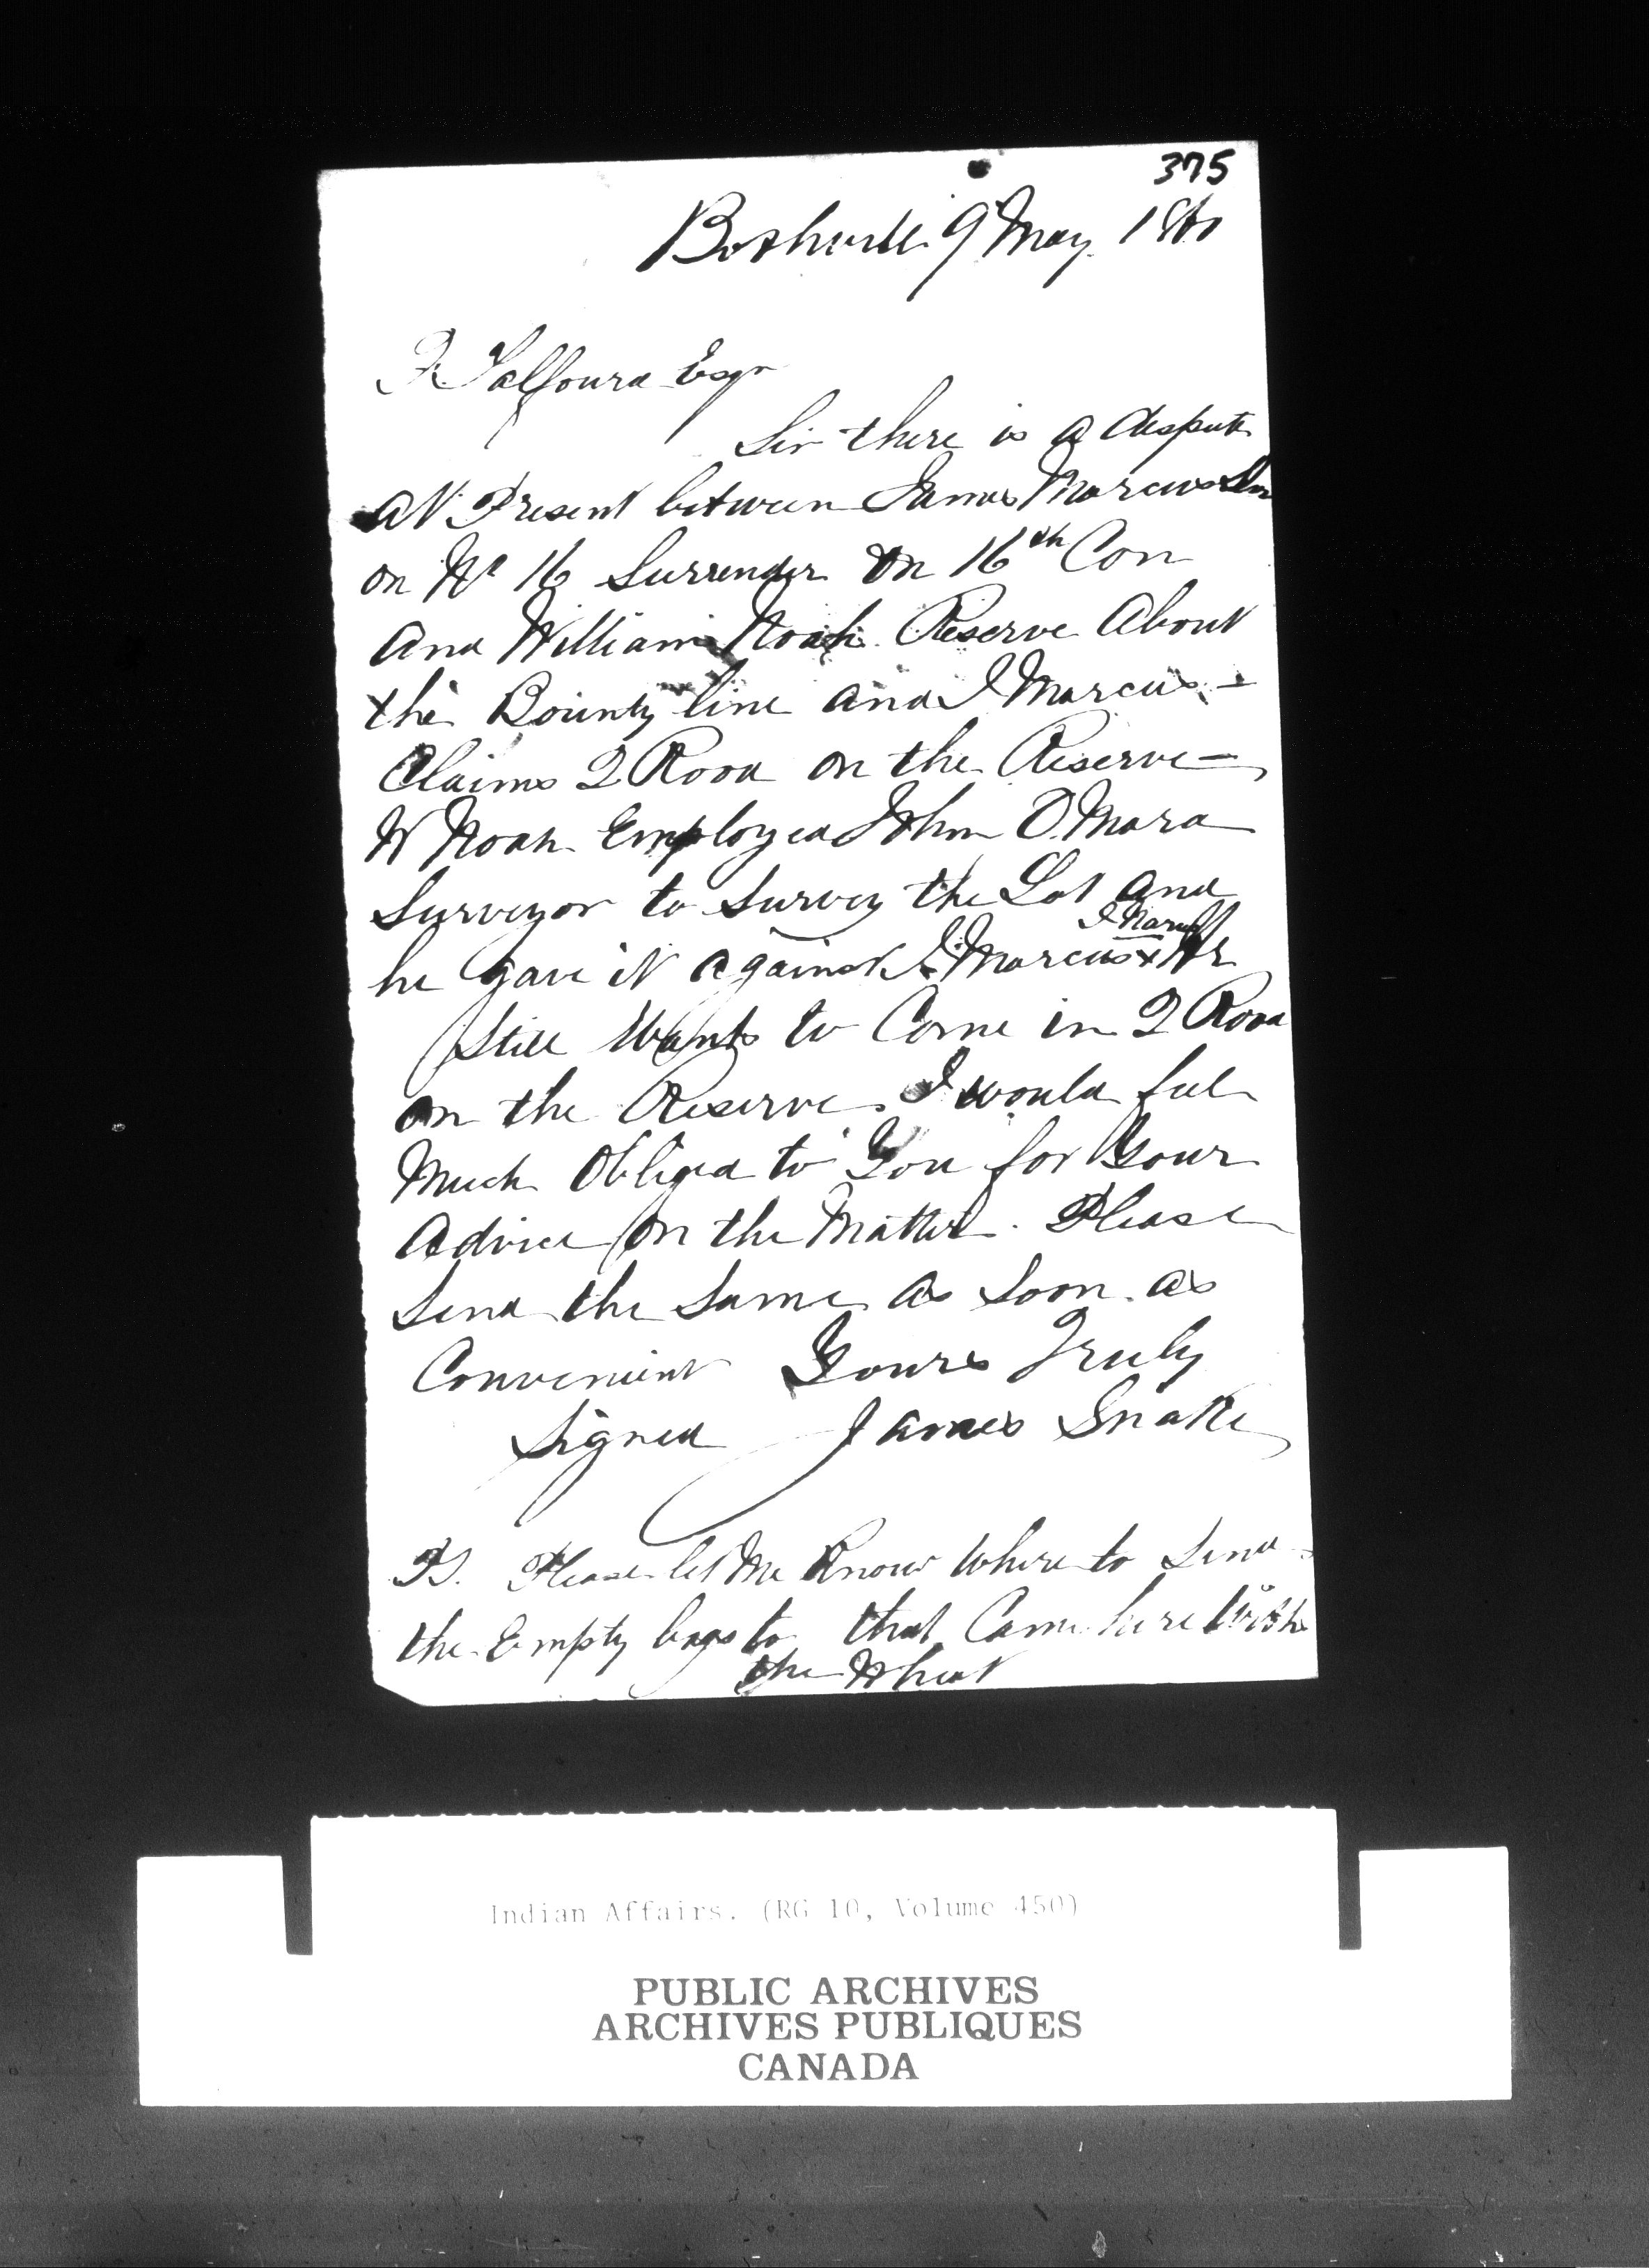 375
Bothwell 9 May 1861
F. Talfourd Esqr
Sir there is a dispute
at Present between James Marcus Snr
on No 16 Surrender on 16th Con
and William Noah Reserve About
the Bounty line and J Marcus -
Claims 2 Rood on the Reserve -
W Noah Employed John O.Mara
Surveyor to Survey the Lot and
he gave it against J. Marcus x
Still Wants to Come in 2 Rood
on the Reserve. I would feel
Much Obliged to You for Your
Advice on the Matter. Please
Send the Same as Soon as
Convenient Yours Truly
Signed James Snake
PS. Please let Me Know Where to Send -
the Empty bags to that Came here With
the Wheat
Indian Affairs. (RG 10, Volume 450)
PUBLIC ARCHIVES
ARCHIVES PUBLIQUES
CANADA